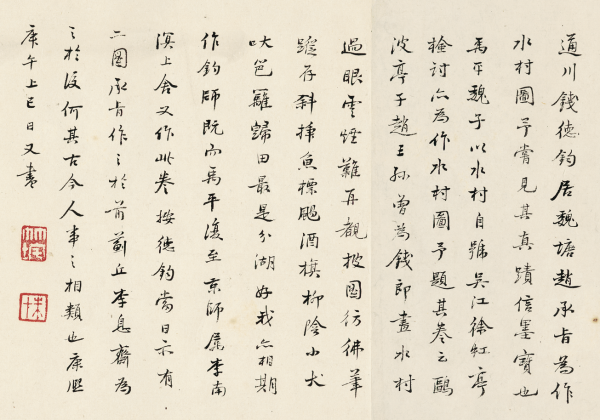 通川錢德鈞居魏塘趙承旨為作
水村圖予嘗見其真蹟信墨寶也
禹平魏子以水村自號吳江徐虹亭
檢討亦為作水村圖予題其卷云鷗
波亭子趙王孫曾為錢郎畫水村
過眼雲煙難再披圖彷彿筆
蹤存斜揷魚標颺酒旗柳陰小犬
吠笆籬歸田最是分湖好我亦相期
作釣師既而禹平復至京師屬李南
溟上舍又作此卷按德鈞當日亦有
二圖承旨作之於前薊丘李息齋為
之於後何其古今人事之相類也康熙
庚午上巳日又書